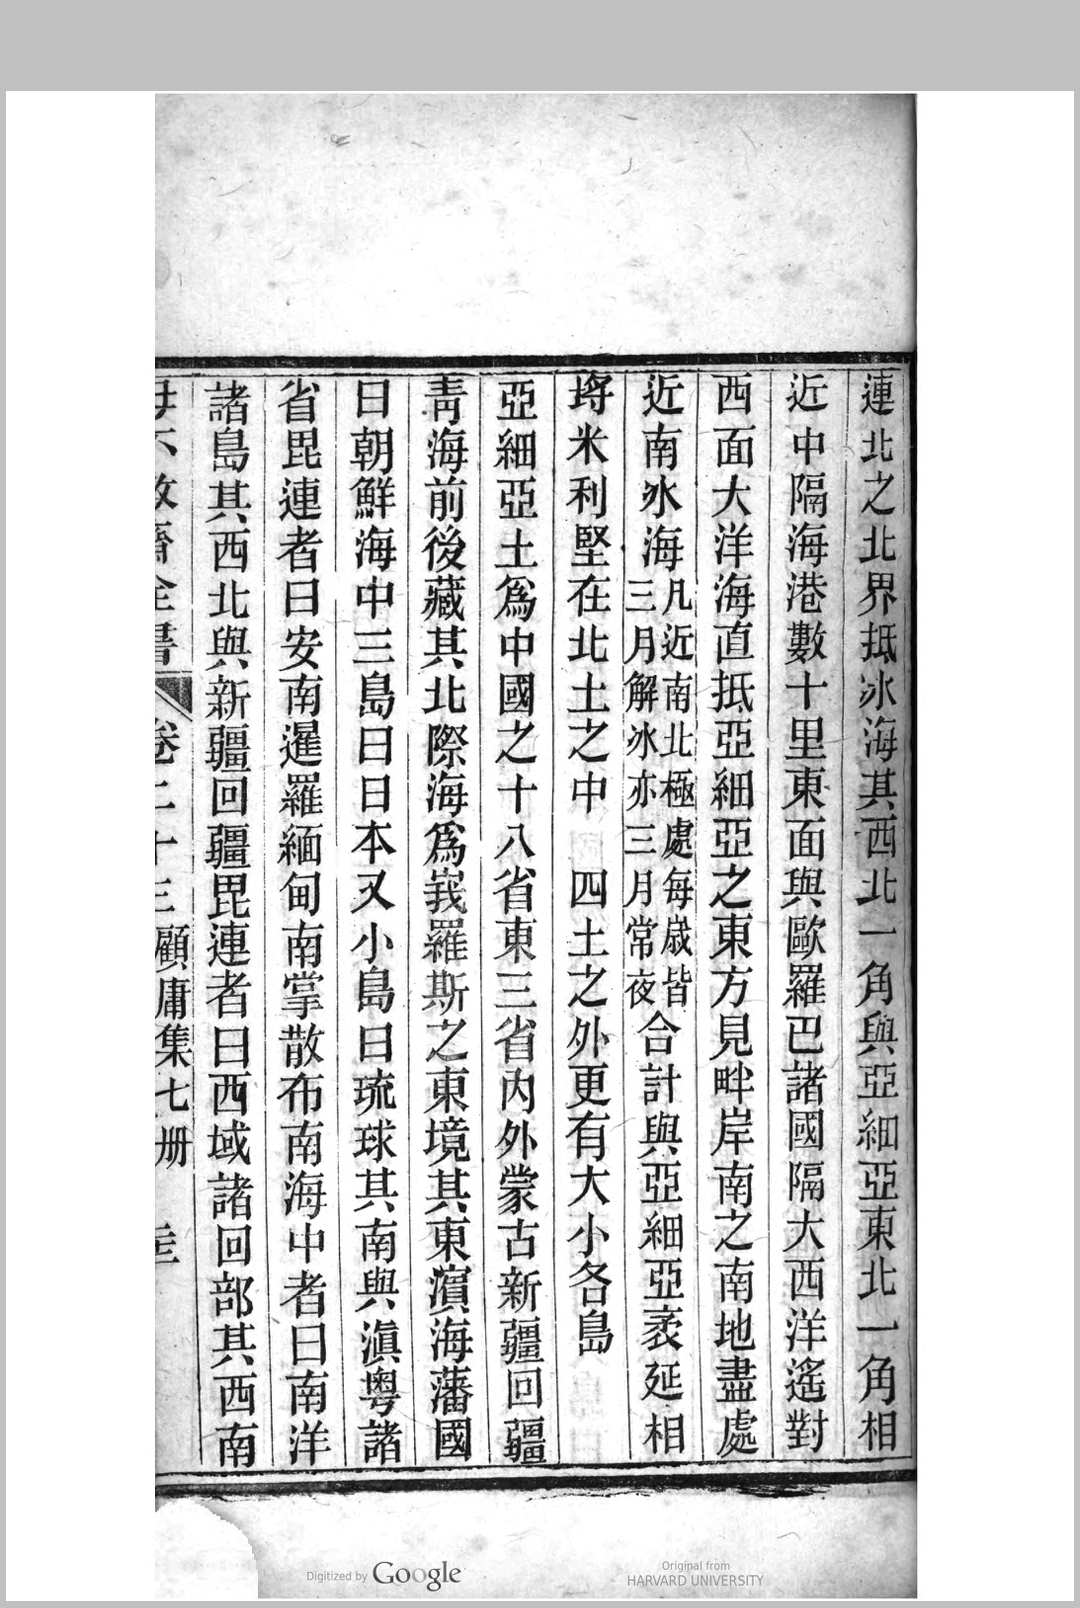 連北之北界抵冰海其西北一角與亞細亞東北一角相
近中隔海港數十里東面與歐羅巴諸國隔大西洋遙對
西面大洋海直抵亞細亞之東方見畔岸南之南地盡處
近南氷海凡近南北極處每嵗皆三月解冰亦三月常夜合計與亞細亞袤延相
埒米利堅在北土之中 四土之外更有大小各島
亞細亞土爲中國之十八省東三省内外蒙古新疆回疆
靑海前後藏其北際海爲峩羅斯之東境其東濵海藩國
曰朝鮮海中三島曰日本又小島曰琉球其南與滇粤諸
省毘連者曰安南暹羅緬甸南掌散布南海中者曰南洋
諸島其西北與新疆回疆毘連者曰西域諸回部其西南
毋不敬齋全書 卷二十三 顧庸集七册
Digitized by Google
Original from
HARVARD UNIVERSITY